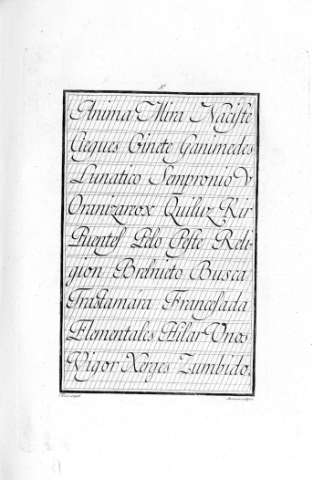 Anima Mira Naciste
Ciegues Ginete Ganimedes
Lunatico Sempronio V
Orantzarzox Quiluz Kir
Puentes Pelo Peste Reli-
gion Brebneto Busca
Trastamára Francesada
Elementales Hilar Vnos
Wigor Xerges Zumbido.